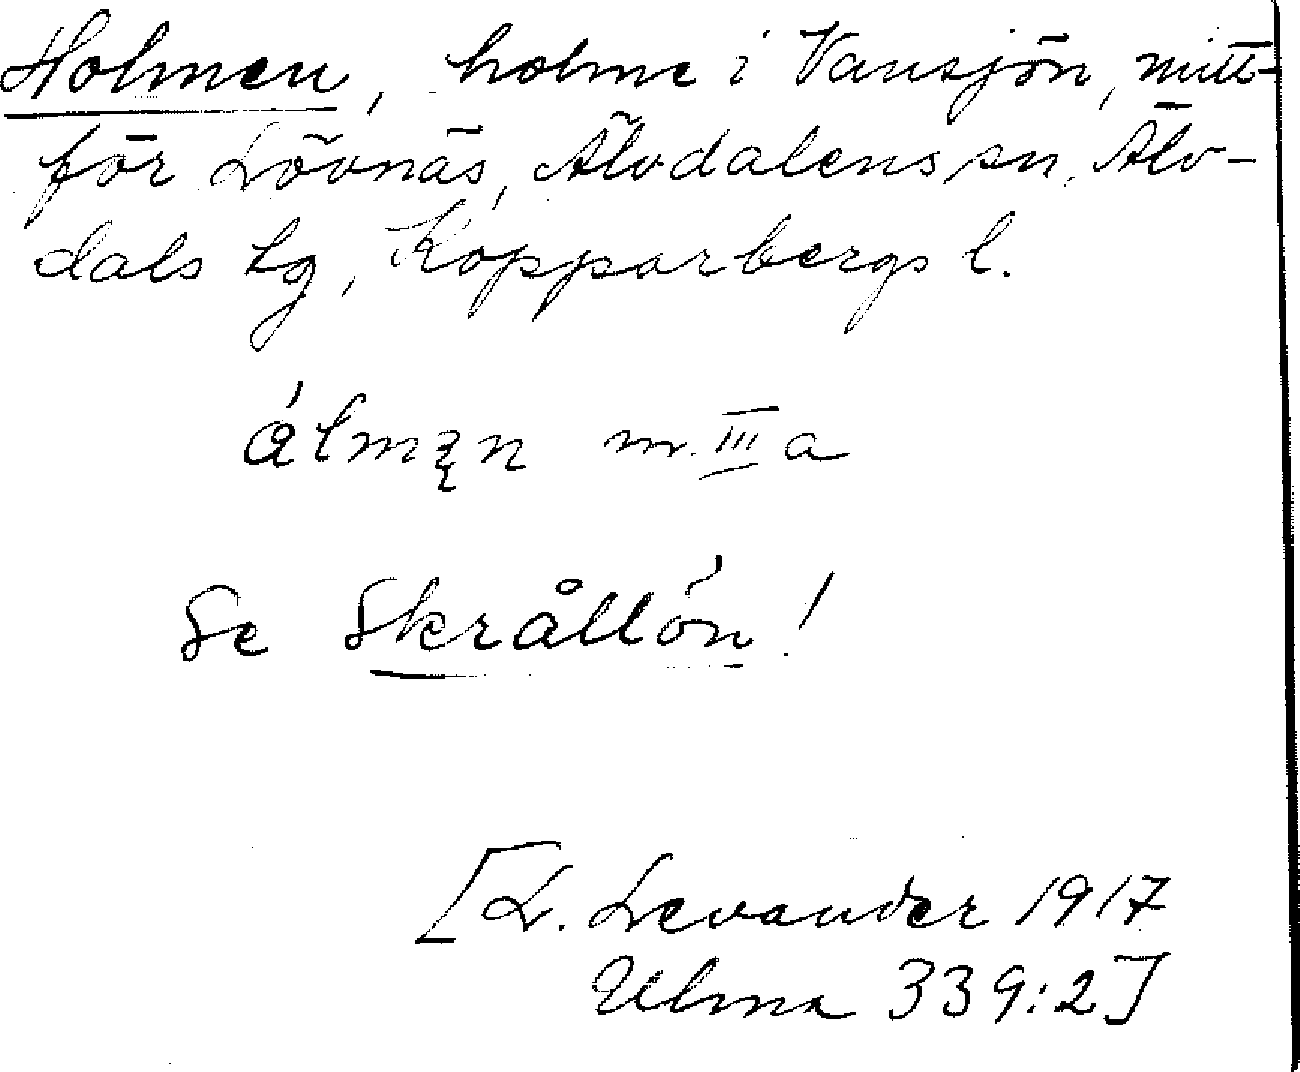 Holmen, holme i Vansjön, mitt-
för Lövnäs, Älvdalens sn, Älv-
dals tg, Kopparbergs l.
álmąn m. III a
Se Skrållön!
[L. Levander 1917
Ulma 339:2]